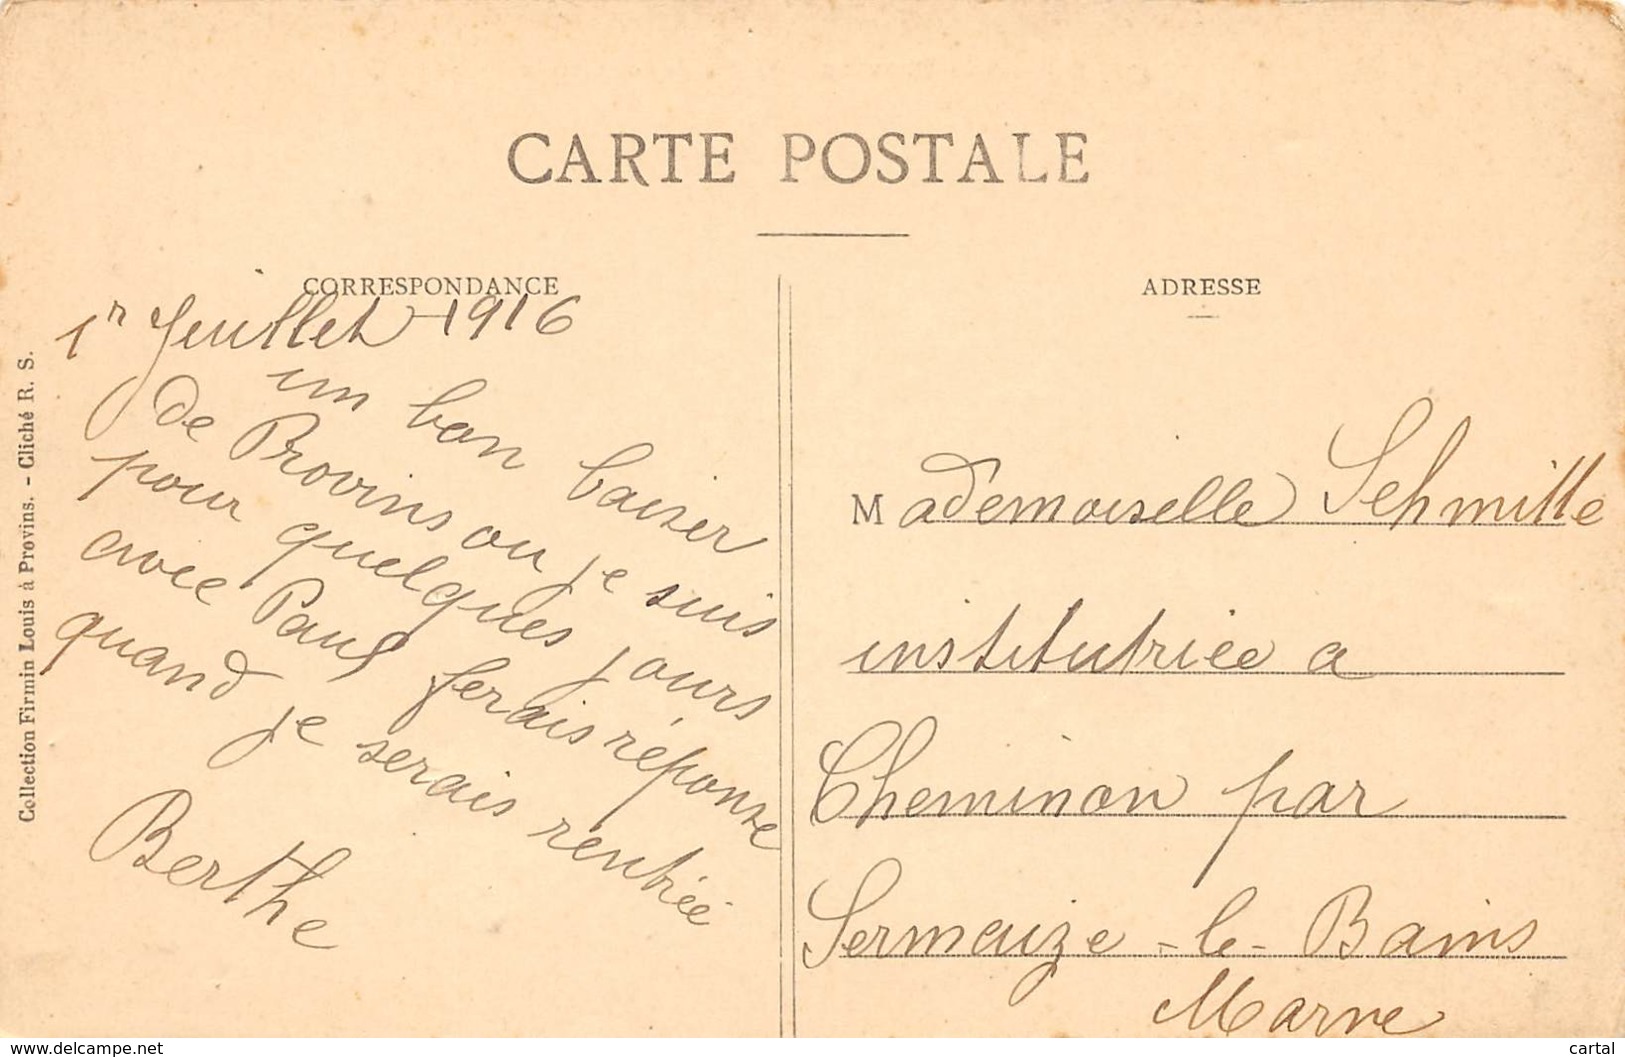 CARTE POSTALE
CORRESPONDANCE
ADRESSE
1r Juillet 1916
un bon baiser
de Provins ou je suis
pour quelques jours
avec Paul ferais réponse
quand je serais rentrée
Berthe
Mademoiselle Schmitte
institutrice a
Cheminon par
Sermaize-le-Bains
Marne
Collection Firmin Louis à Provins. - Cliché R. S.
https://www.delcampe.net
cartal